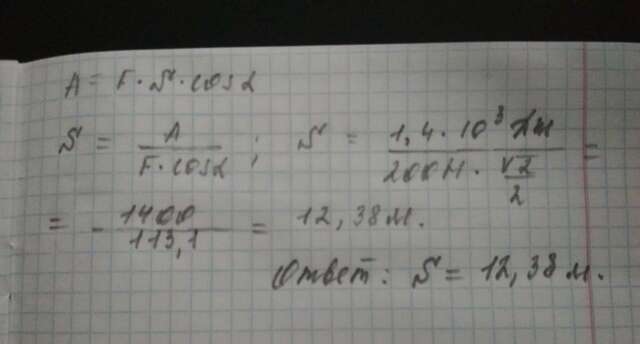 A = F · S · cos α
S = A / F · cos α ; S = 1,4 · 10³ Дж / 200 Н · √2 / 2 =
= 1400 / 113,1 = 12,38 м.
Ответ: S = 12,38 м.